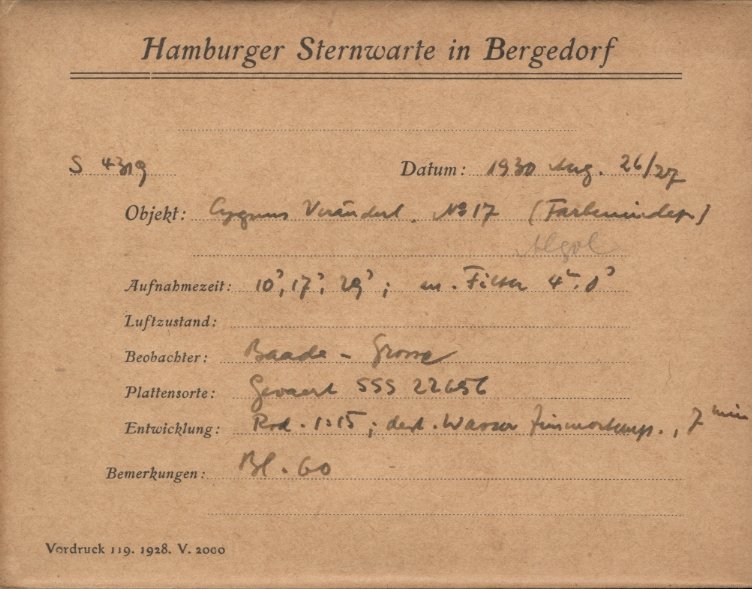 Hamburger Sternwarte in Bergedorf
S 4319 Datum: 1930 Aug. 26/27
Objekt: Cygnus Veränderl. No 17 (Farbenindex)
Algol
Aufnahmezeit: 10ˢ, 17ˢ, 29ˢ; m. Filter 4ᵐ.0ˢ
Luftzustand:
Beobachter: Baade - Grosse
Plattensorte: Gevaert SSS 22656
Entwicklung: Rod. 1:15; dest. Wasser Zimmertemp., 7 min
Bemerkungen: Bl. 60
Vordruck 119. 1928. V. 2000